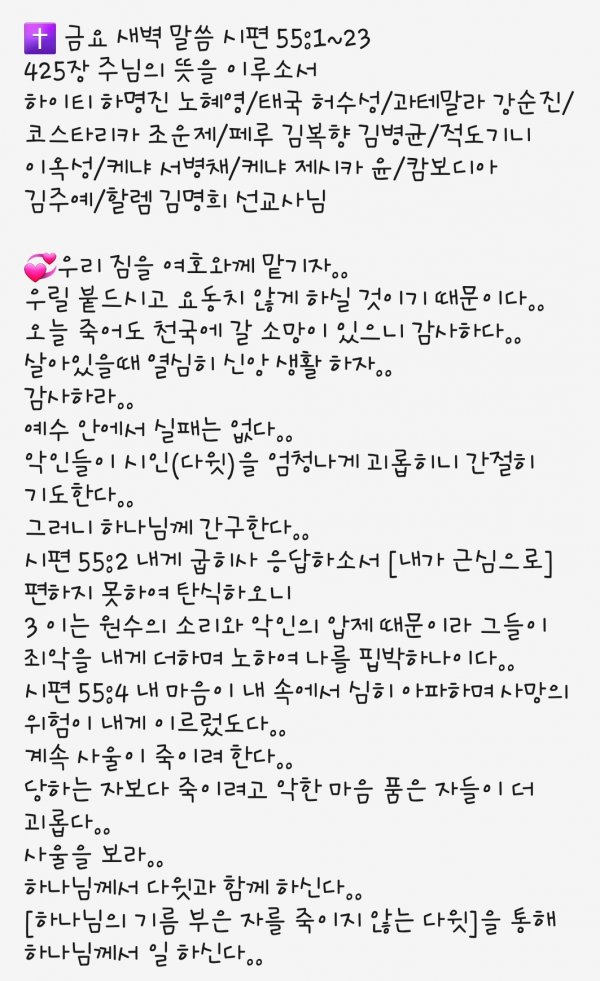 ✝️ 금요 새벽 말씀 시편 55:1~23
425장 주님의 뜻을 이루소서
하이티 하명진 노혜영/태국 허수성/과테말라 강순진/
코스타리카 조운제/페루 김복향 김병균/적도기니
이옥성/케냐 서병채/케냐 제시카 윤/캄보디아
김주예/할렘 김명희 선교사님
💞우리 짐을 여호와께 맡기자..
우릴 붙드시고 요동치 않게 하실 것이기 때문이다..
오늘 죽어도 천국에 갈 소망이 있으니 감사하다..
살아있을때 열심히 신앙 생활 하자..
감사하라..
예수 안에서 실패는 없다..
악인들이 시인(다윗)을 엄청나게 괴롭히니 간절히
기도한다..
그러니 하나님께 간구한다..
시편 55:2 내게 굽히사 응답하소서 [내가 근심으로]
편하지 못하여 탄식하오니
3 이는 원수의 소리와 악인의 압제 때문이라 그들이
죄악을 내게 더하며 노하여 나를 핍박하나이다..
시편 55:4 내 마음이 내 속에서 심히 아파하며 사망의
위험이 내게 이르렀도다..
계속 사울이 죽이려 한다..
당하는 자보다 죽이려고 악한 마음 품은 자들이 더
괴롭다..
사울을 보라..
하나님께서 다윗과 함께 하신다..
[하나님의 기름 부은 자를 죽이지 않는 다윗]을 통해
하나님께서 일 하신다..